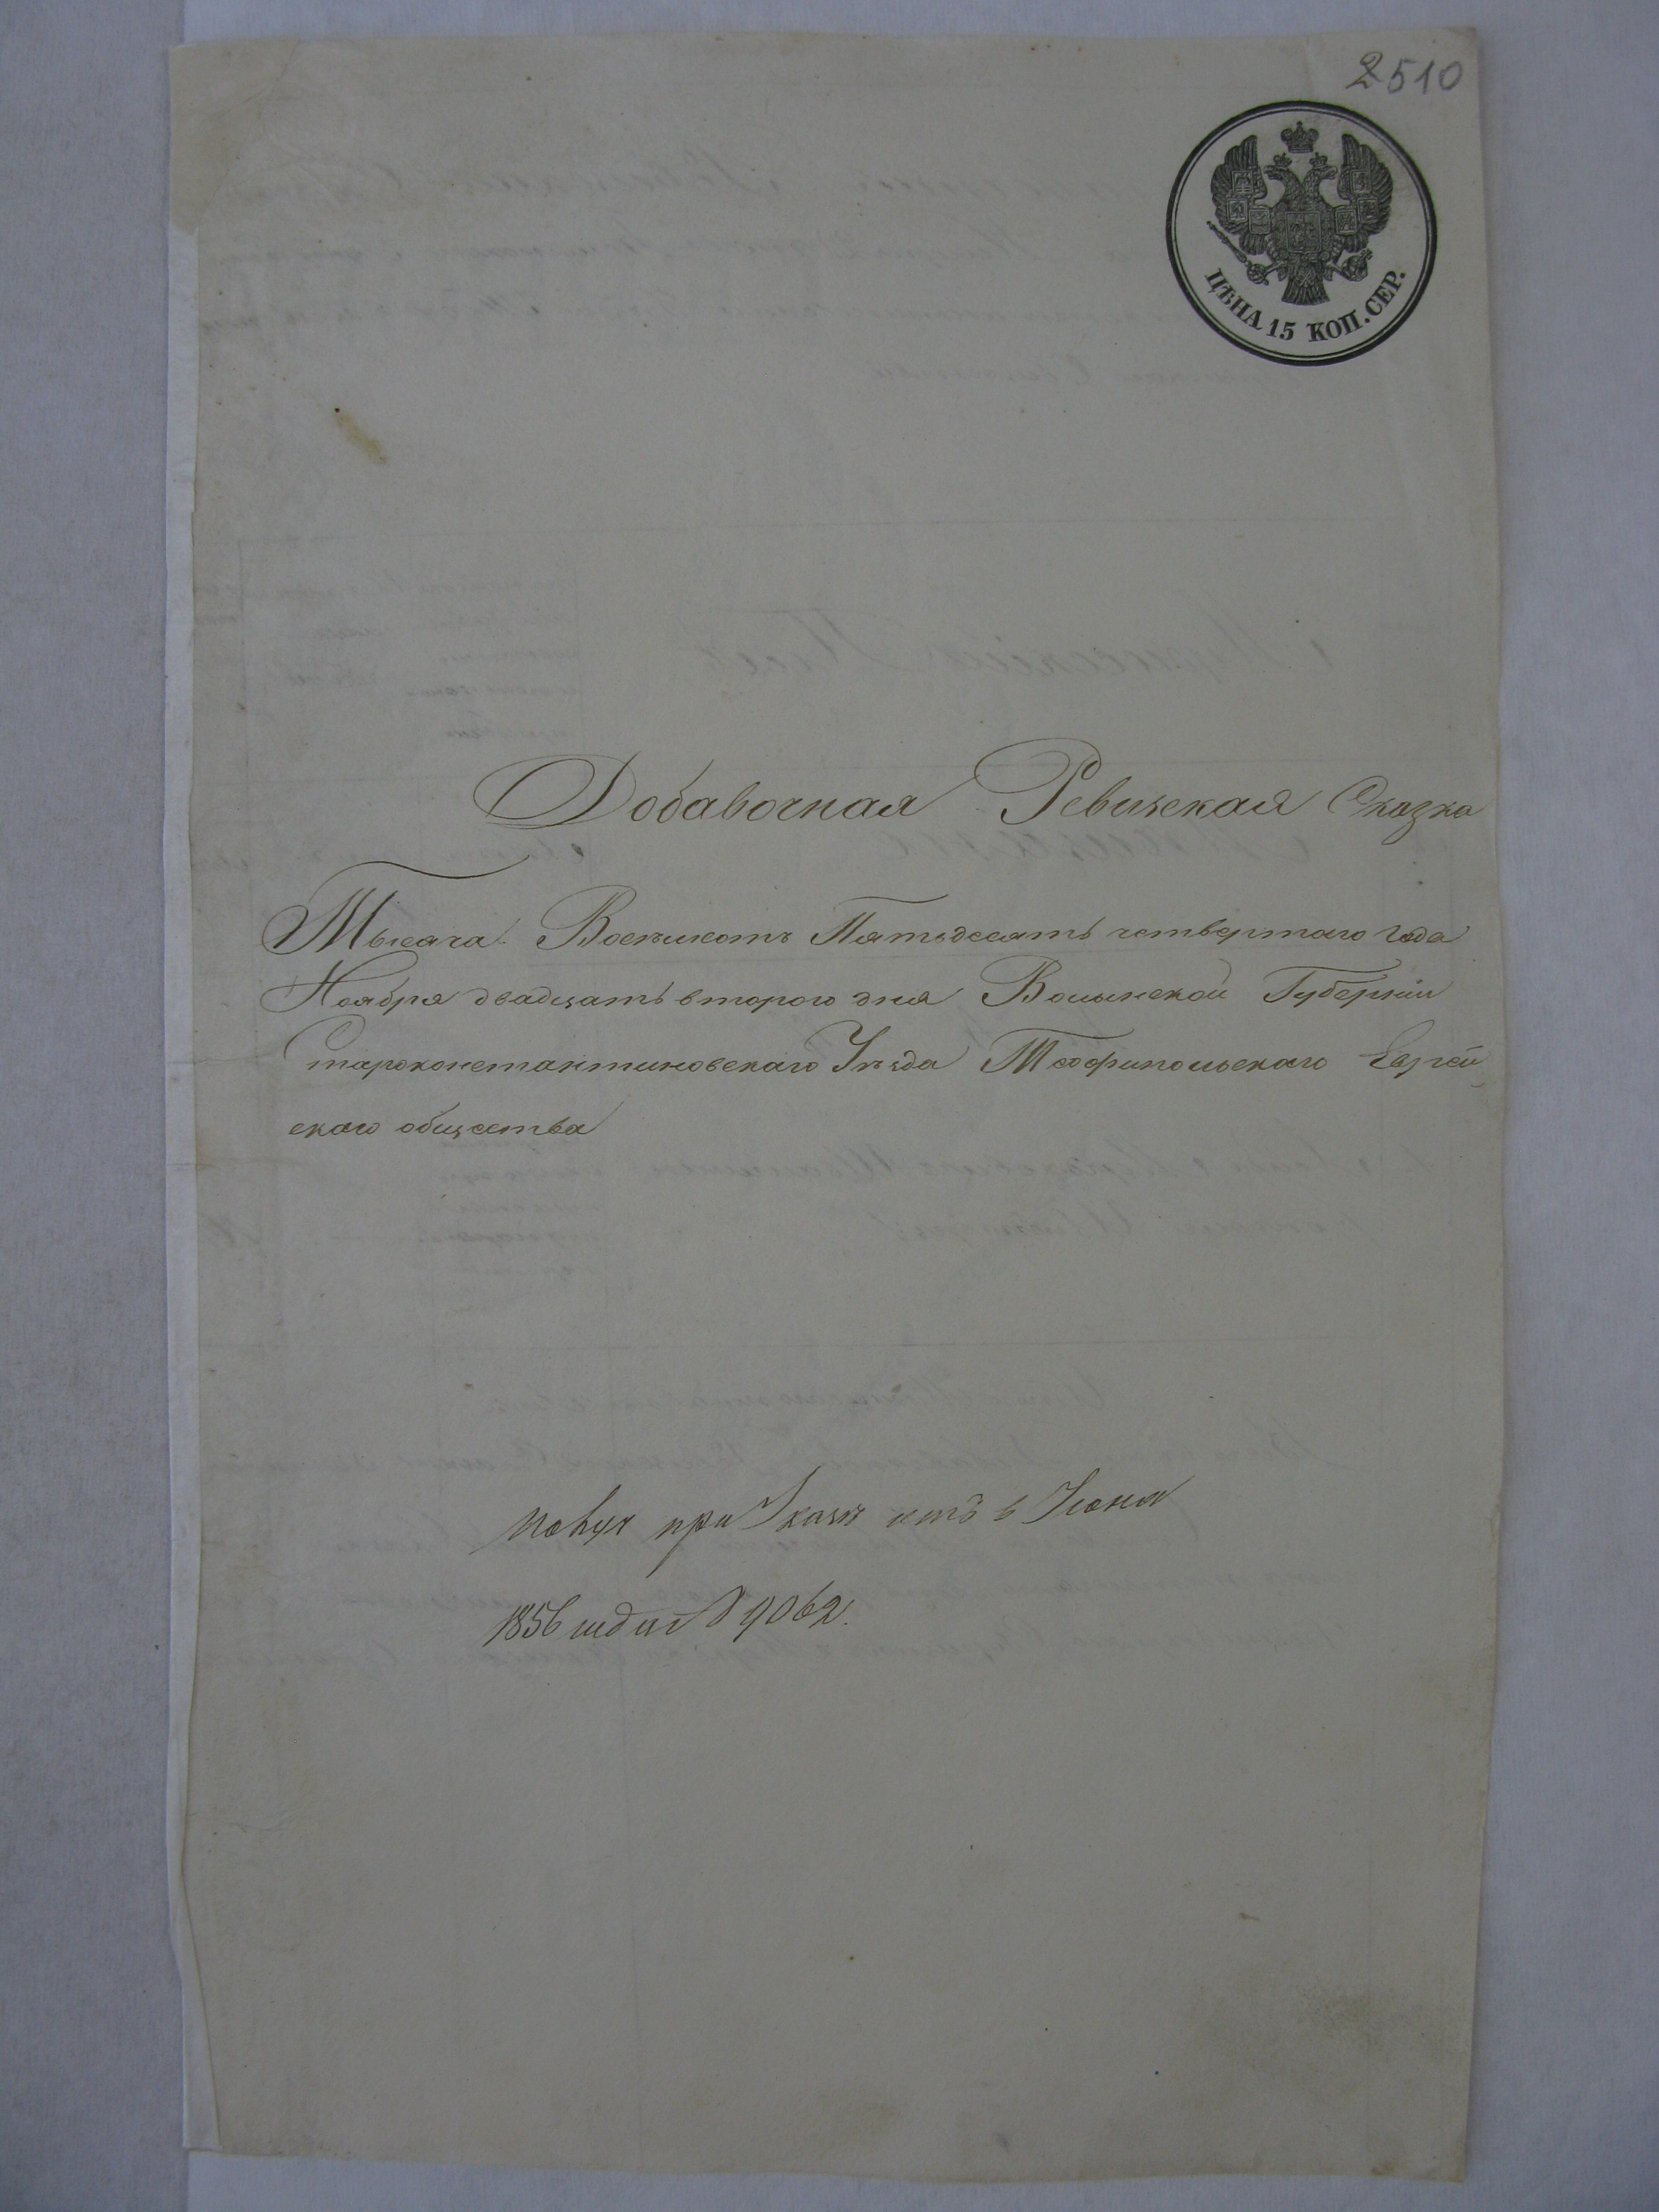 2510
ЦѢНА 15 КОП. СЕР.
Добавочная Ревизская Сказка
Тысяча Восемьсотъ Пятьдесятъ четвертаго года
Ноября двадцать втораго дня Волынской Губерніи
Староконстантиновскаго Уѣзда Теофипольскаго Еврей
скаго общества
при Указѣ отъ 6 Іюня
1856 года 9062.